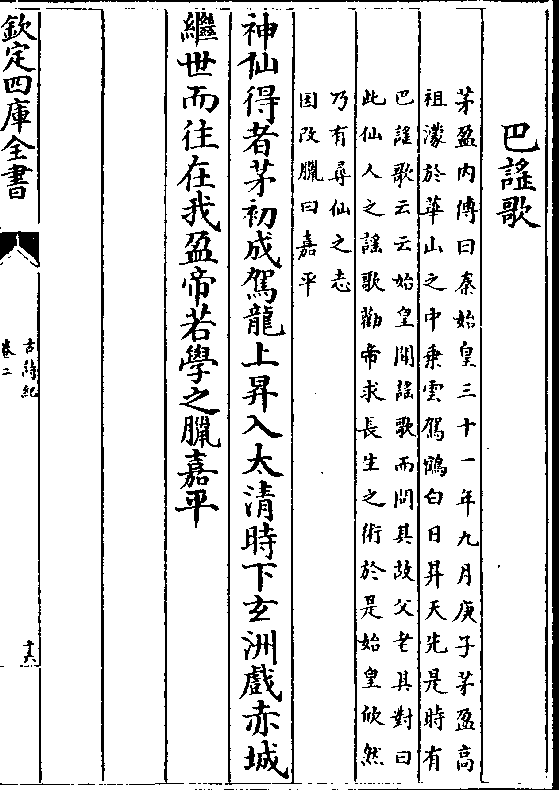 巴謡歌
茅盈内傳曰秦始皇三十一年九月庚子茅盈高
祖濛於華山之中乗雲駕鶴白日昇天先是時有
巴謡歌云云始皇聞謡歌而問其故父老具對曰
此仙人之謡歌勸帝求長生之術於是始皇欣然
乃有尋仙之志
因改臘曰嘉平
神仙得者茅初成駕龍上昇入太清時下玄洲戲赤城
繼世而往在我盈帝若學之臘嘉平
欽定四庫全書
古詩紀
卷二
十六